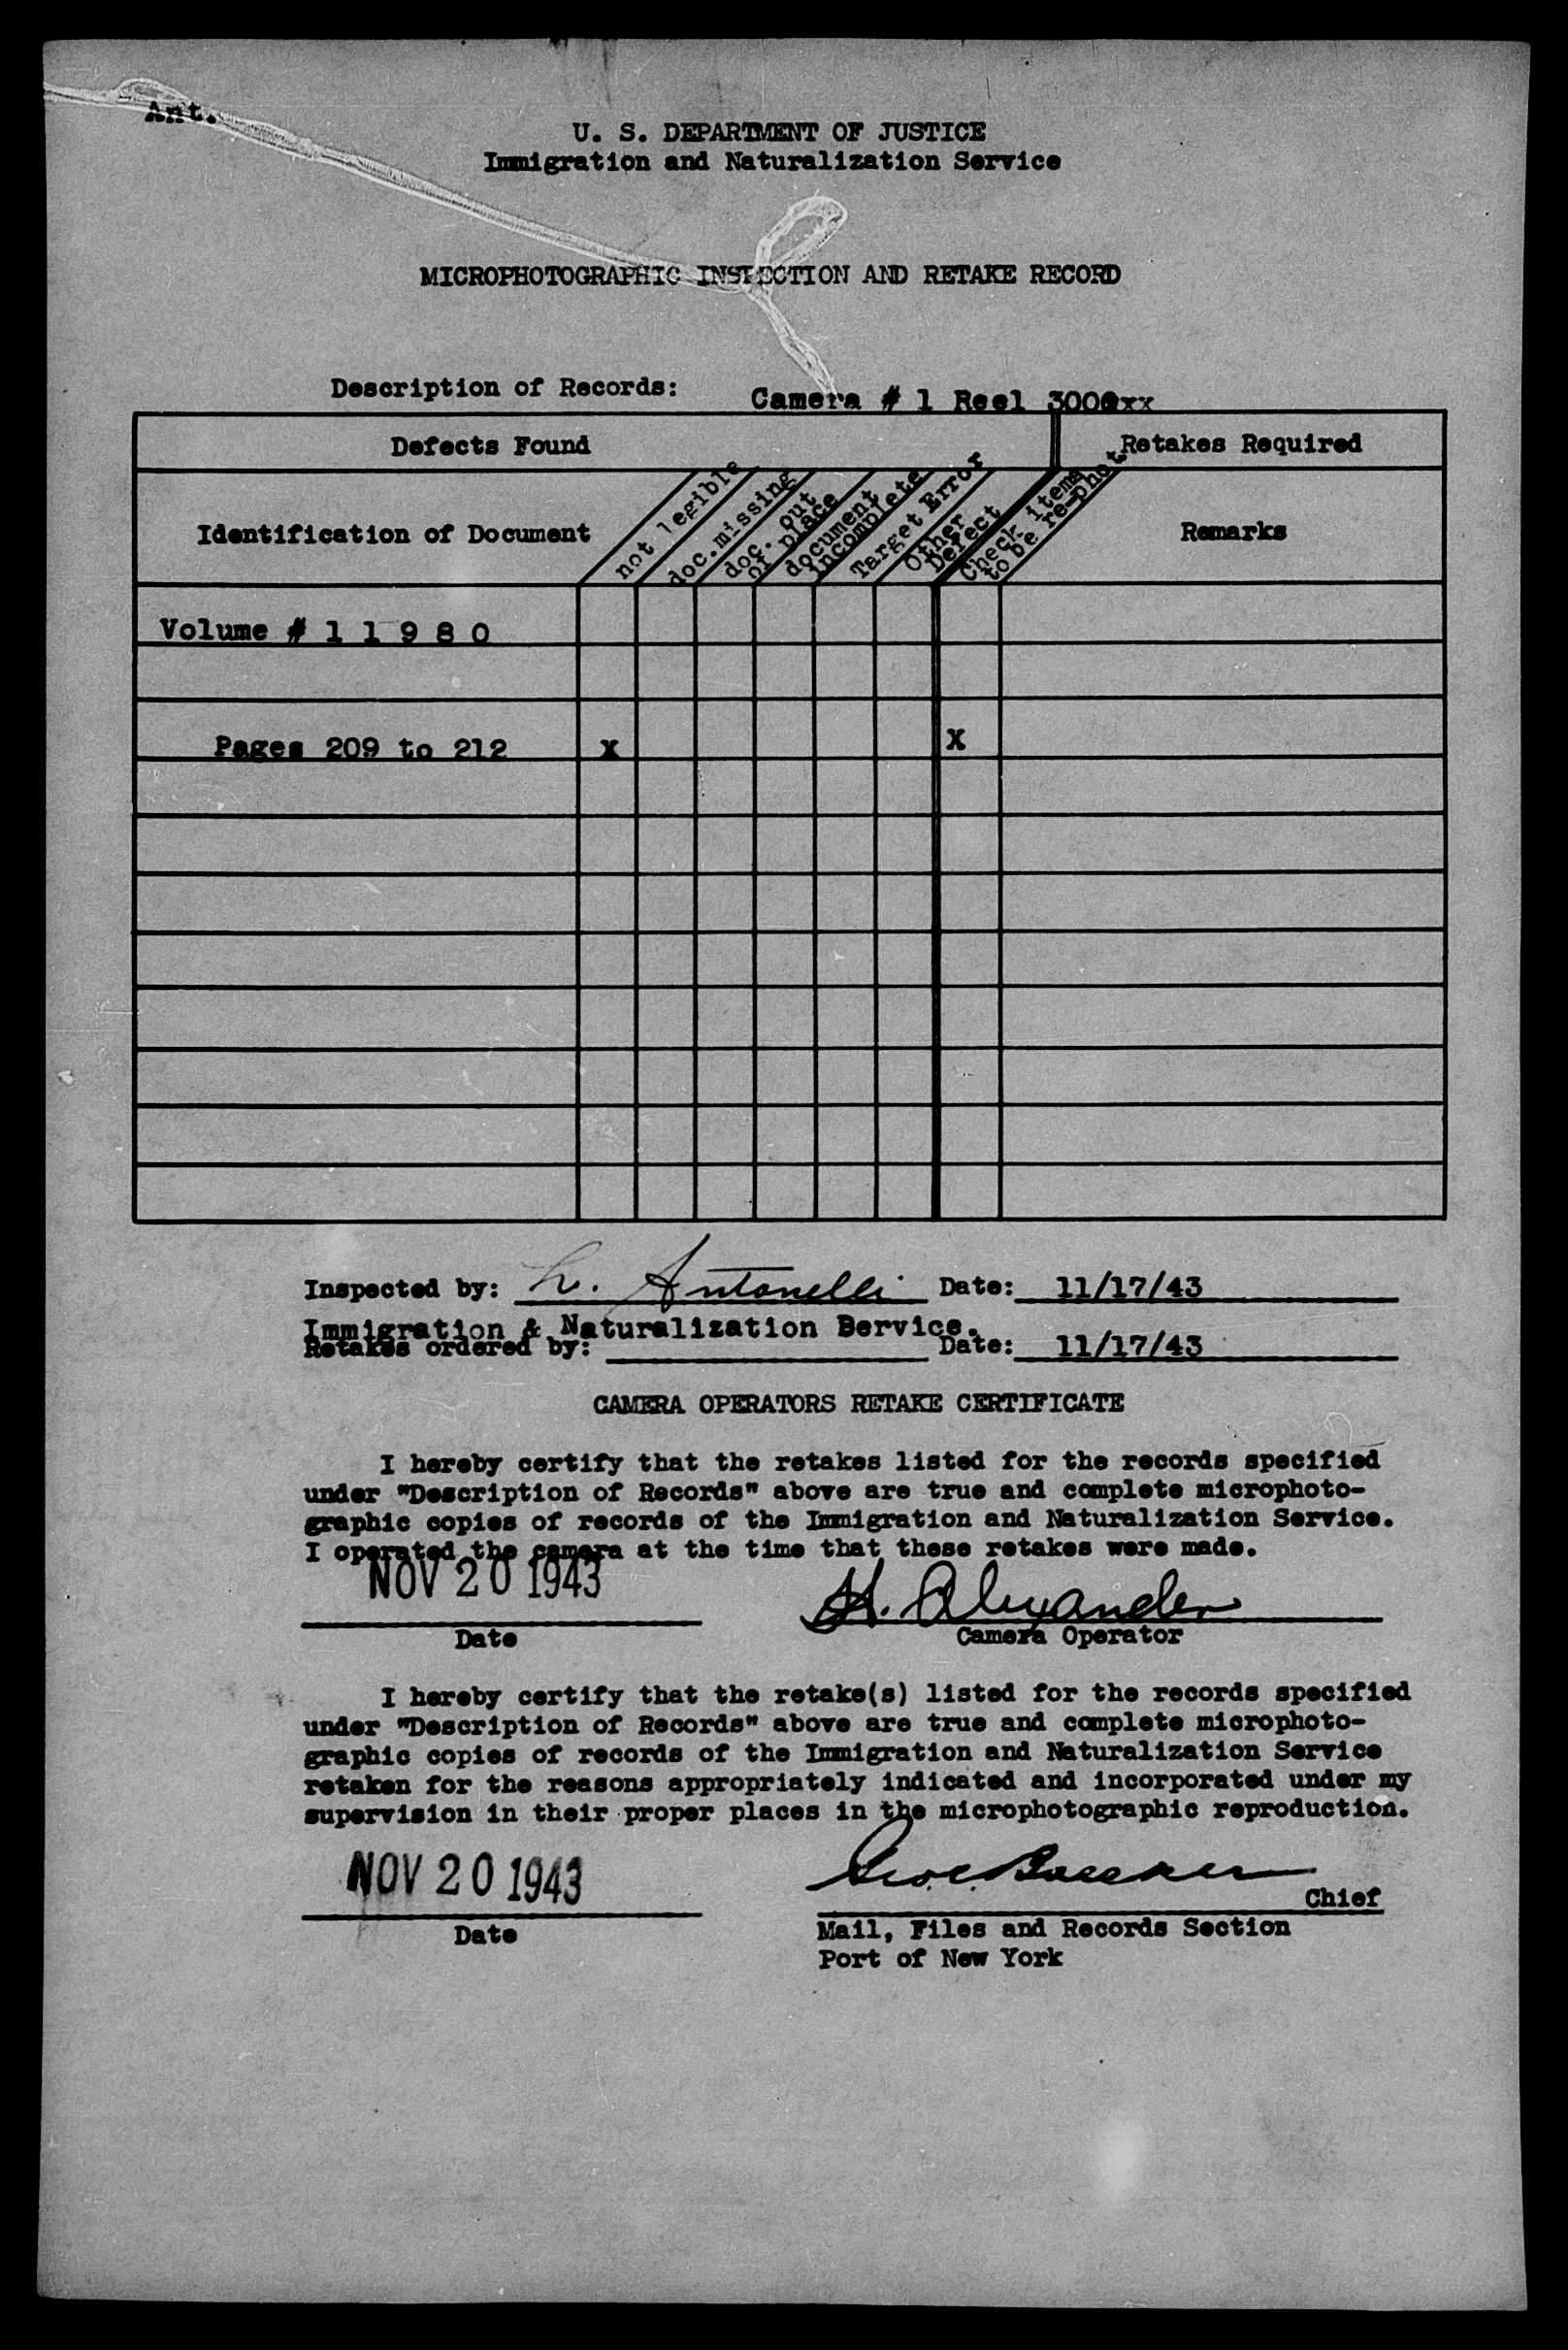 Ant.
U. S. DEPARTMENT OF JUSTICE
Immigration and Naturalization Service
MICROPHOTOGRAPHIC INSPECTION AND RETAKE RECORD
Description of Records: Camera # 1 Reel 3000xx
Defects Found
Retakes Required
Identification of Document
not legible
doc.missing
doc. out
of place
document
incomplete
Target Error
Other
Defect
Check items
to be re-phot
Remarks
Volume # 1 1 9 8 0
Pages 209 to 212 X X
Inspected by: L. Antonelli Date: 11/17/43
Immigration & Naturalization Bervice.
Retakes ordered by: Date: 11/17/43
CAMERA OPERATORS RETAKE CERTIFICATE
I hereby certify that the retakes listed for the records specified
under "Description of Records" above are true and complete microphoto-
graphic copies of records of the Immigration and Naturalization Service.
I operated the camera at the time that these retakes were made.
NOV 20 1943 H. Alexander
Date Camera Operator
I hereby certify that the retake(s) listed for the records specified
under "Description of Records" above are true and complete microphoto-
graphic copies of records of the Immigration and Naturalization Service
retaken for the reasons appropriately indicated and incorporated under my
supervision in their proper places in the microphotographic reproduction.
NOV 20 1943
Chief
Date Mail, Files and Records Section
Port of New York